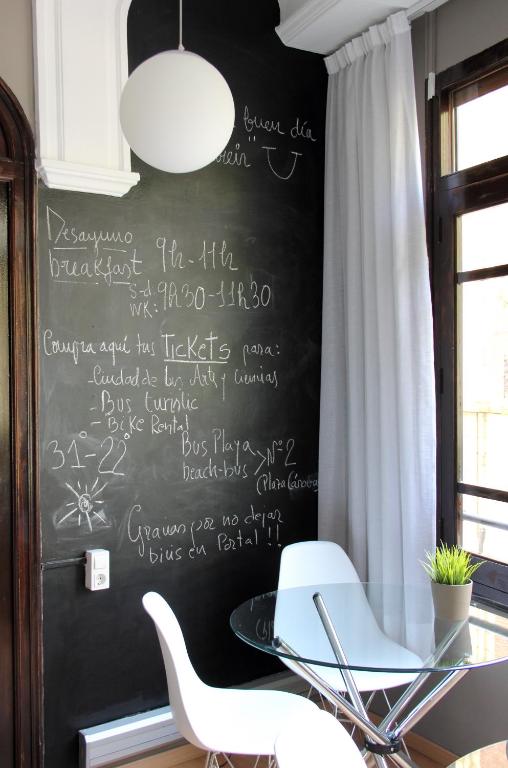 buen día
Desayuno 9h-11h
breakfast
S-d
WK: 9h30-11h30
Compra aquí tus TICKETS para:
- Ciudad de las Arts y ciencias
- Bus turistic
- Bike Rental
31°-22°
Bus Playa
beach-bus > Nº 2
Gracias por no dejar
bicis en Portal !!